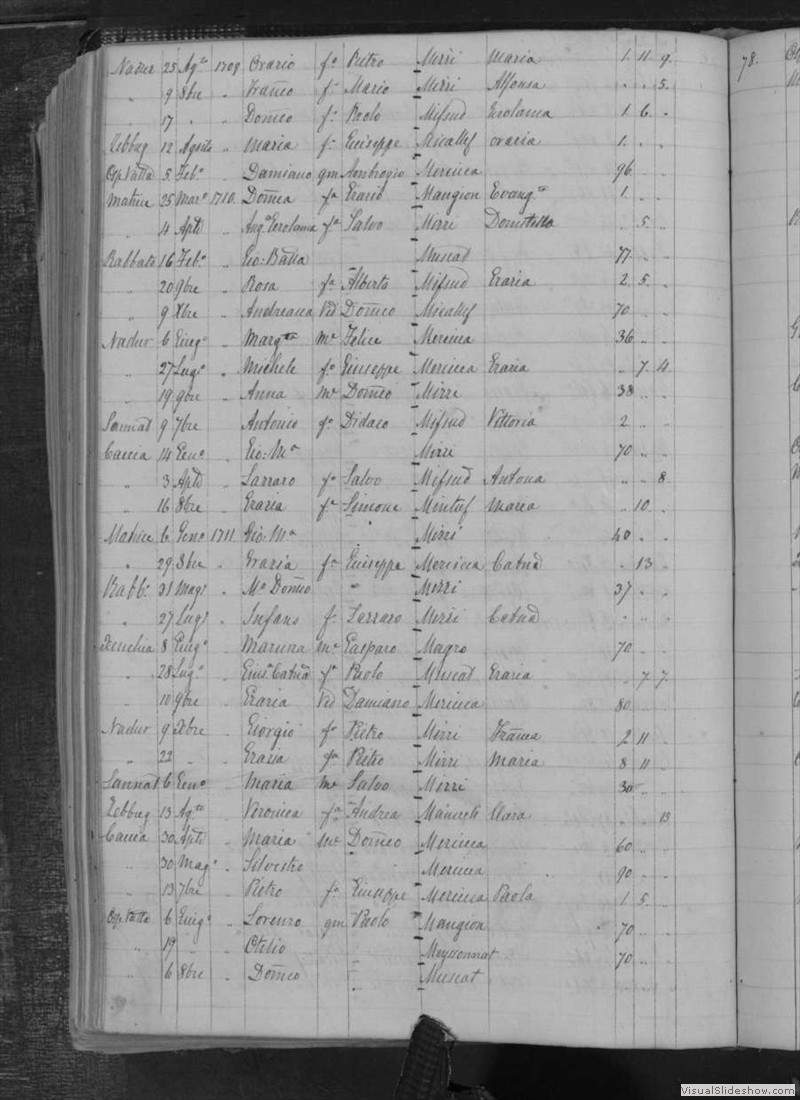 Nadur 25 Ag.to 1709 Orario f.o Pietro Mirri Maria 1. 11. 9.
" 9 8bre " Franco f. Mario Mirri Alfonsa " " 5.
" 17 " " Domco f. Paolo Mifsud Gerolama 1. 6. "
Zebbug 12 Agosto " Maria f. Giuseppe Micallef oraria 1. "
5 Feb.o " Damiano qm Ambrogio Mercieca 96.
Matrice 25 Mar.o 1710. Domca f.a Mangion Evang.ta 1. "
" 4 Aple " Ang.a Gerolama f.a Salvo Mirri " 5. "
Rabbato 16 Feb.o " Gio: Batta Muscat 77. "
" 20 9bre " Rosa f.a Alberto Mifsud Grazia 2. 5. "
" 9 Xbre " Andreana Vid Domco Micallef 70. "
Nadur 6 Giug.o " Marg.ta m.e Felice Mercieca 36. "
" 27 Lug.o " Michele f.o Giuseppe Mercieca Grazia " 7. 4.
" 19 9bre " Anna m.e Domco Mirri 38 "
Sannat 9 7bre Antonio f.o Didaco Mifsud Vittoria 2. "
Caccia 14 Gen.o " Gio: M.a Mirri 70. "
" 3 Aple " Lazzaro f.o Salvo Mifsud Antona " " 8
" 16 8bre " Grazia f.a Simone Mintuf Maria " 10. "
Matrice 6 Gen.o 1711. Gio: M.a " Mirri 40. "
" 29 8bre " Grazia f.a Giuseppe Mercieca Catna " 13 "
Rabb: 31 Mag.o " M.o Domco " Mirri 37. "
" 27 Lug.o " Infans f. Lazzaro Mirri Catna " "
8 Giug.o " Maruna m.e Gasparo Magro 70. "
" 28 Lug.o " Gius.a Catna f.a Paolo Muscat Grazia " 7. 7.
" 10 9bre " Grazia Vid Damiano Mercieca 80. "
Nadur 9 Xbre " Giorgio f.o Pietro Mirri Franca 2 11 "
" 22 " Grazia f.a Pietro Mirri Maria 8 11 "
Sannat 6 Gen.o " Maria m.e Salvo Mirri 30 "
Zebbug 13 Ag.to " Veronica f.a Andrea Clara " " 13
Caccia 30 Aple " Maria m.e Domco Mercieca 60 "
" 30 Mag.o " Silvestro Mercieca 90 "
" 13 7bre " Pietro f.o Giuseppe Mercieca Paola 1. 5. "
6 Giug.o " Lorenzo qm Paolo Mangion 70 "
" 19 " " Otilio " Meyssonnat 70. "
" 6 8bre " Domco " Muscat
78.
VisualSlideshow.com